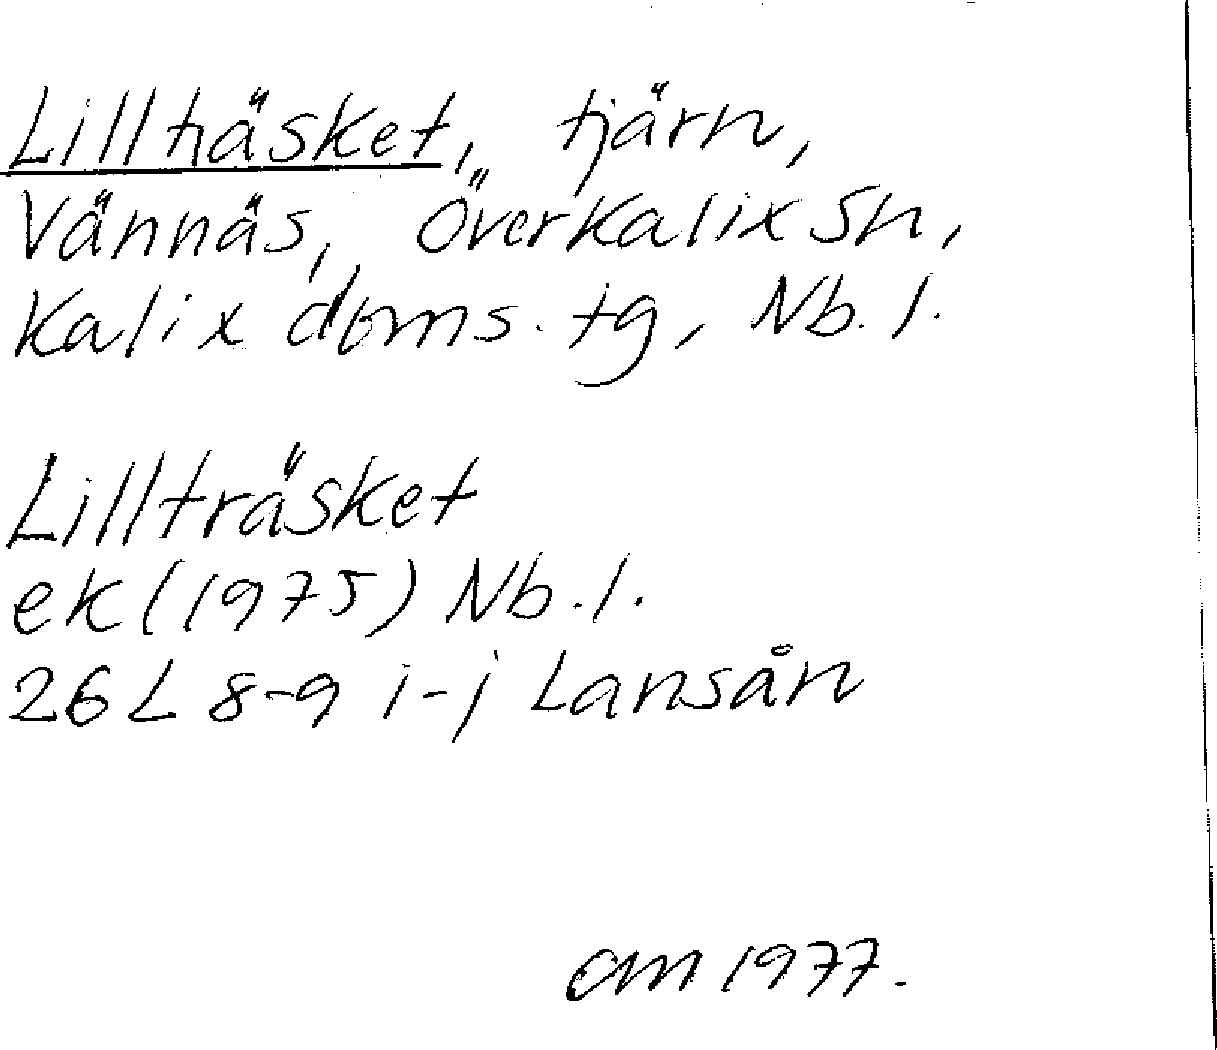 Lillträsket, tjärn,
Vännäs, Överkalix sn,
Kalix doms. tg, Nb. l.
Lillträsket
ek (1975) Nb. l.
26 L 8-9 i-j Lansån
am 1977.